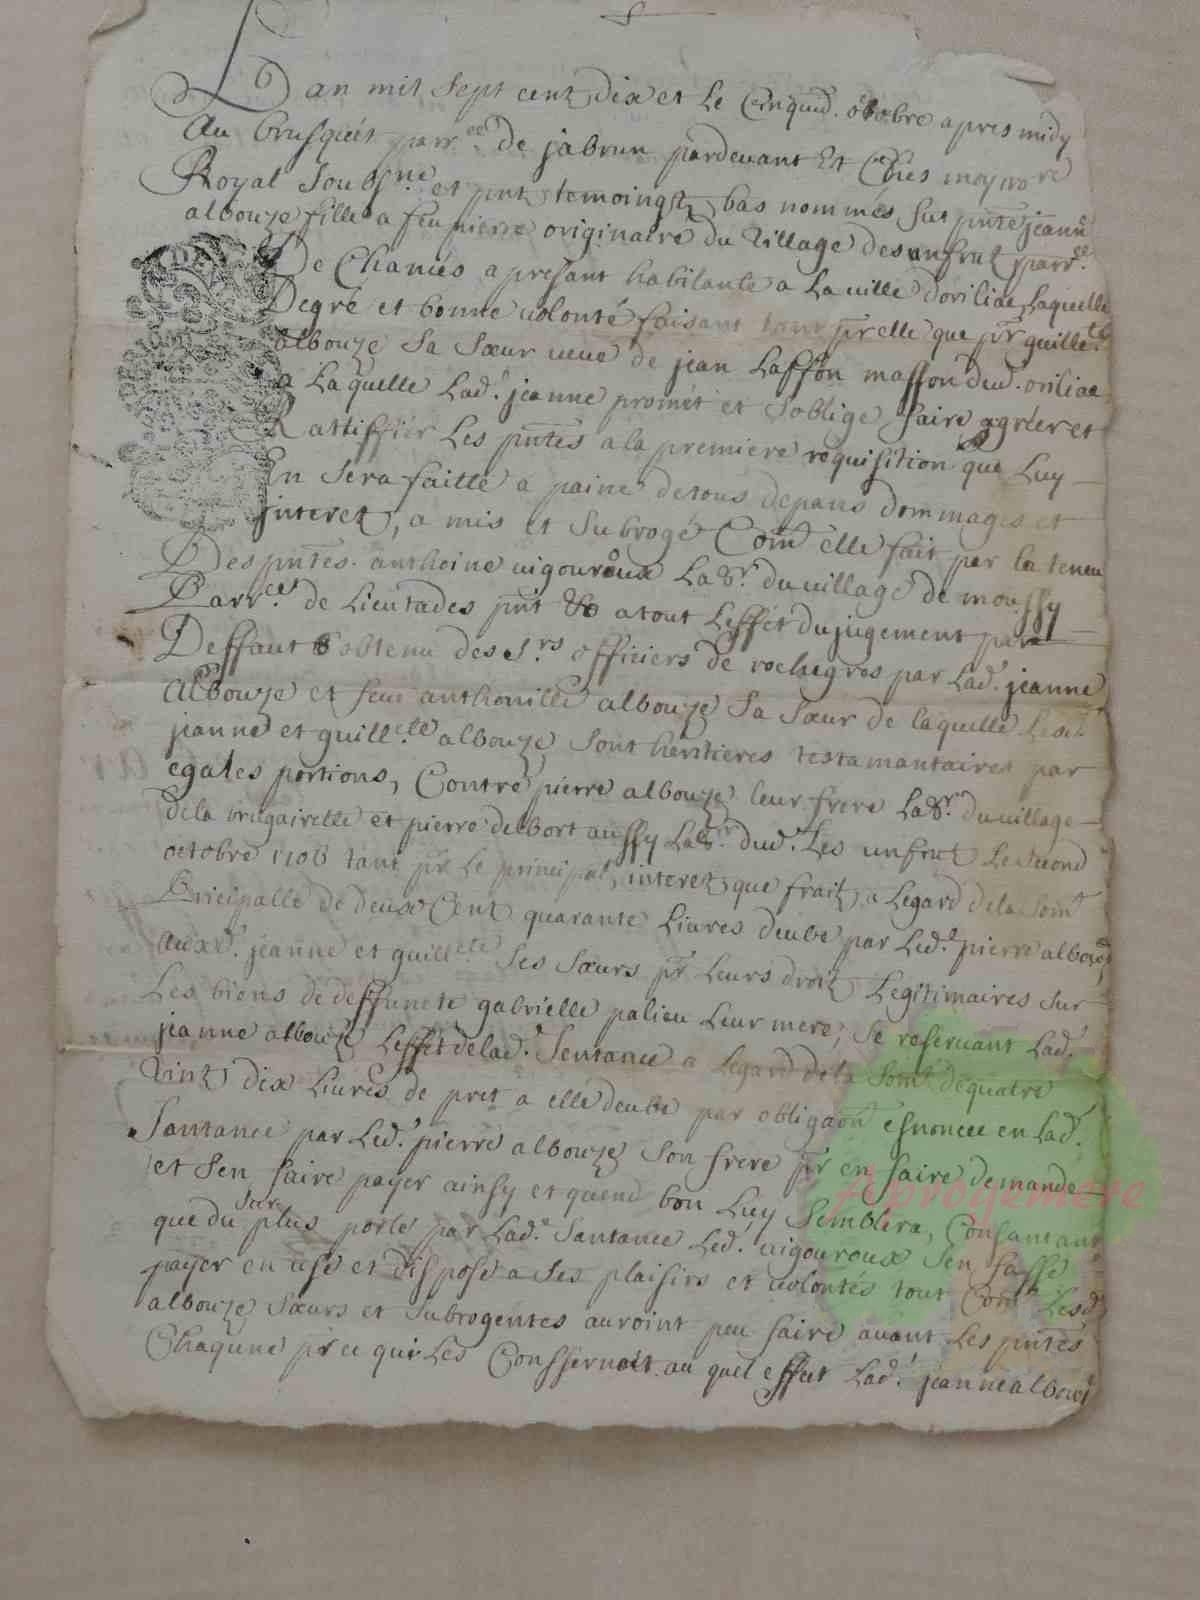 L'an mil sept cent dix et le cinquie. octobre apres midy
Au brusquét parr.ee de jabrun pardevant Et Chés moy no.re
Royal soubs.ne et pnt temoingts bas nommés fut pnte jeanne
albouze fille a feu pierre originaire du village des unfrut parr.ee
De Chanies a presant habitante a la ville d'oriliac laquelle
De gré et bonne volonté faisant tant pr elle que pr guill.te
albouze sa sœur veue de jean Laffon masson dud. oriliac
a Laquelle Lad. jeanne promét et soblige faire agréer et
Rattiffiér Les pntes a la premiere requisition que Luy
En sera faitte a paine de tous depans dommages et
jnteret, a mis et subrogé Com elle fait par la teneu
Des pntes. anthoine vigouroux Lab.r du village de moussy
Parr.ee de Lieutades pnt & a tout L'effét du jugement par
Deffaut obtenu des S.rs officiers de rochegros par Lad. jeanne
Albouze et feue anthonille albouze sa sœur de laquelle Lesd.
jeanne et guill.ete albouze sont heritieres testamantaires par
egales portions, Contre pierre albouze leur frere Lab.r du village
de la brugairette et pierre delbort aussy Lab.r dud. Les unfrut Le second
octobre 1706 tant pr le principal, interet que frait, a Legard de la som
Principalle de deux Cent quarante Livres deube par Led. pierre albouze
auxd. jeanne et guill.ete ses sœurs pr Leurs droit Legitimaires sur
Les biens de deffuncte gabrielle palieu Leur mere, se reservant Lad.
jeanne albouze L'effét de lad. sentance a legard de la som de quatre
vint dix Livres de prét a elle deube par obligaon esnoncee en Lad.
santance par Led. pierre albouze son frere pr en faire demande
et sen faire payer ainsy et quend bon Luy semblera, Consantant
que du sur plus porté par Lad.e santance Led. vigouroux sen fasse
payer en use et dispose a ses plaisirs et volontés tout Com Lesd.
albouze sœurs et subrogentes auroint peu faire avant Les pntes
Chaqune pr ce qui Les Conssernoit au quel effect Lad. jeanne albouze
Aprogemere